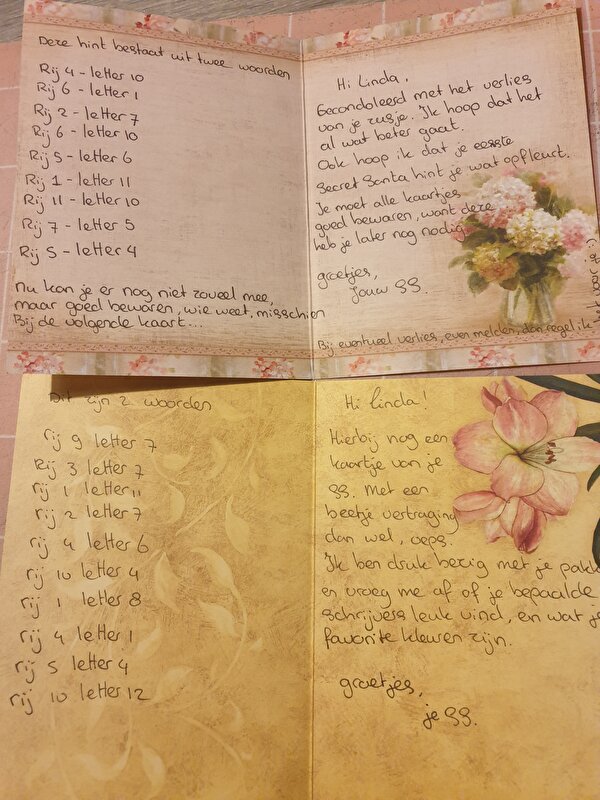 Deze hint bestaat uit twee woorden
Rij 4 - letter 10
Rij 6 - letter 1
Rij 2 - letter 7
Rij 6 - letter 10
Rij 5 - letter 6
Rij 1 - letter 11
Rij 11 - letter 10
Rij 7 - letter 5
Rij 5 - letter 4
Nu kan je er nog niet zoveel mee,
maar goed bewaren, wie weet, misschien
Bij de volgende kaart...
Hi Linda,
Gecondoleerd met het verlies
van je zusje. Ik hoop dat het
al wat beter gaat.
Ook hoop ik dat je eerste
Secret Santa hint je wat opfleurt.
Je moet alle kaartjes
goed bewaren, want deze
heb je later nog nodig.
groetjes,
Jouw SS.
Bij eventueel verlies, even melden, dan regel ik het voor je :)
Dit zijn 2 woorden
rij 9 letter 7
Rij 3 letter 7
rij 1 letter 11
rij 2 letter 7
rij 4 letter 6
rij 10 letter 4
rij 1 letter 8
rij 4 letter 1
rij 5 letter 4
rij 10 letter 12
Hi Linda!
Hierbij nog een
kaartje van je
SS. Met een
beetje vertraging
dan wel, oeps.
Ik ben druk bezig met je pakk
en vroeg me af of je bepaalde
schrijvers leuk vind, en wat je
favorite kleuren zijn.
groetjes,
je SS.